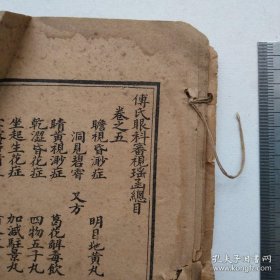 傅氏眼科審視瑤函總目
卷之五
瞻視昏渺症
明目地黃丸
洞見碧霄
又方
睛黃視渺症
葛花解毒飲
乾澀昏花症
四物五子丸
坐起生花症
加減駐景丸